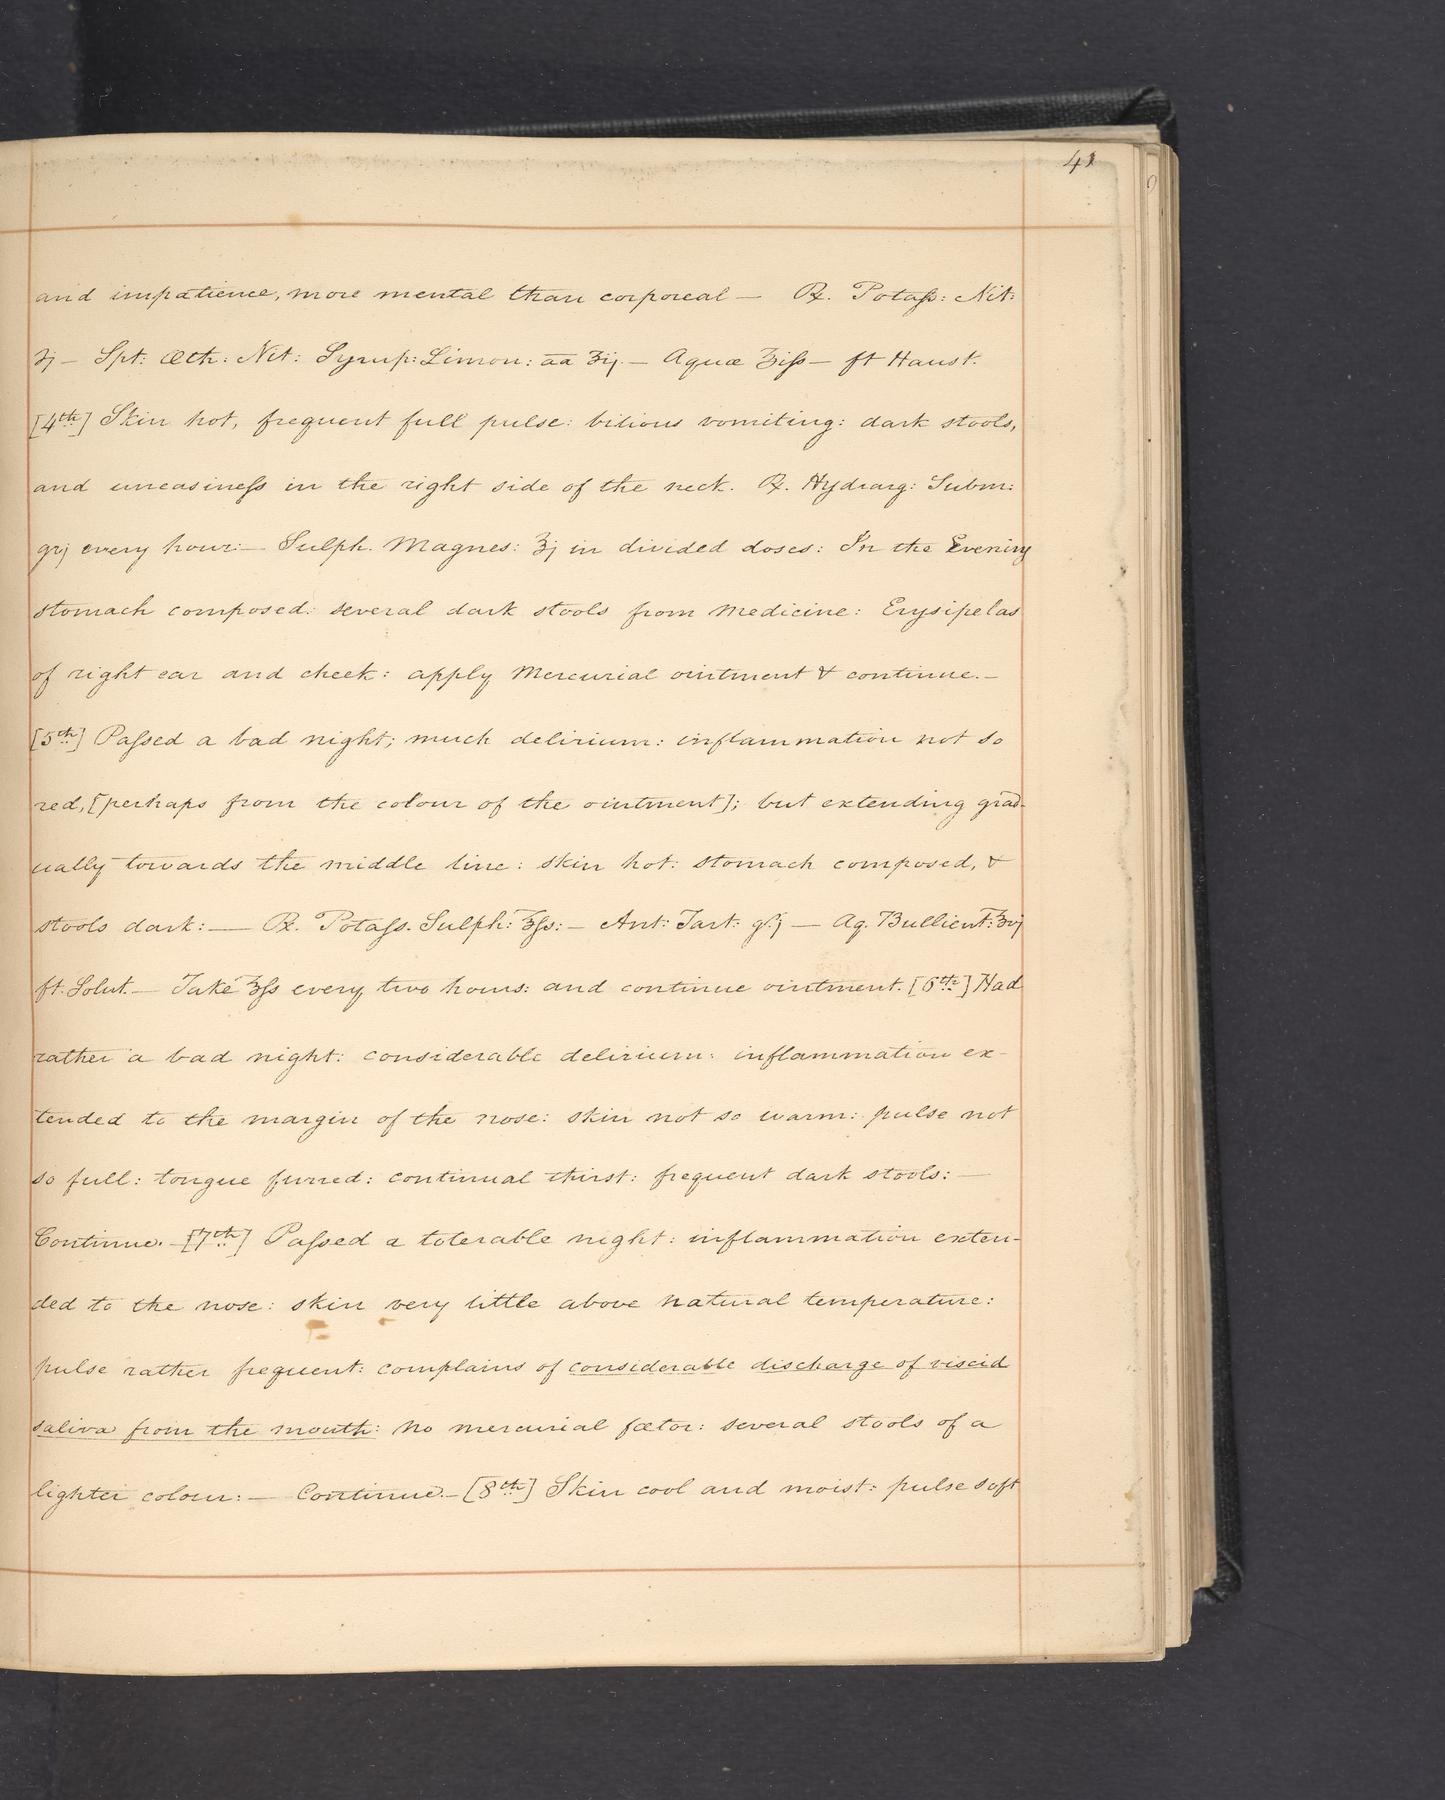 41
and impatience, more mental than corporeal — ℞. Potaſs: Nit:
ʒj — Spt: Æth: Nit: Syrup: Limon: āā ʒij. — Aquæ ℥iſs — ft Haust.
[4th] Skin hot, frequent full pulse: bilious vomiting: dark stools,
and uneasineſs in the right side of the neck. ℞. Hydrarg: Subm:
grj every hour: — Sulph. Magnes: ℥j in divided doses: In the Evening
stomach composed: several dark stools from Medicine: Erysipelas
of right ear and cheek: apply Mercurial ointment & continue. —
[5th] Paſsed a bad night; much delirium: inflammation not so
red, [perhaps from the colour of the ointment]; but extending grad-
ually towards the middle line: skin hot: stomach composed, &
stools dark: — ℞. Potaſs. Sulph: ℥ſs: — Ant: Tart: gr.j — Aq. Bullient: ℥vj
ft. Solut. — Take ℥ſs every two hours: and continue ointment. [6th] Had
rather a bad night: considerable delirium: inflammation ex-
tended to the margin of the nose: skin not so warm: pulse not
so full: tongue furred: continual thirst: frequent dark stools: —
Continue. — [7th] Paſsed a tolerable night: inflammation exten-
ded to the nose: skin very little above natural temperature:
pulse rather frequent: complains of considerable discharge of viscid
saliva from the mouth: no mercurial fœtor: several stools of a
lighter colour: — Continue. — [8th] Skin cool and moist: pulse soft